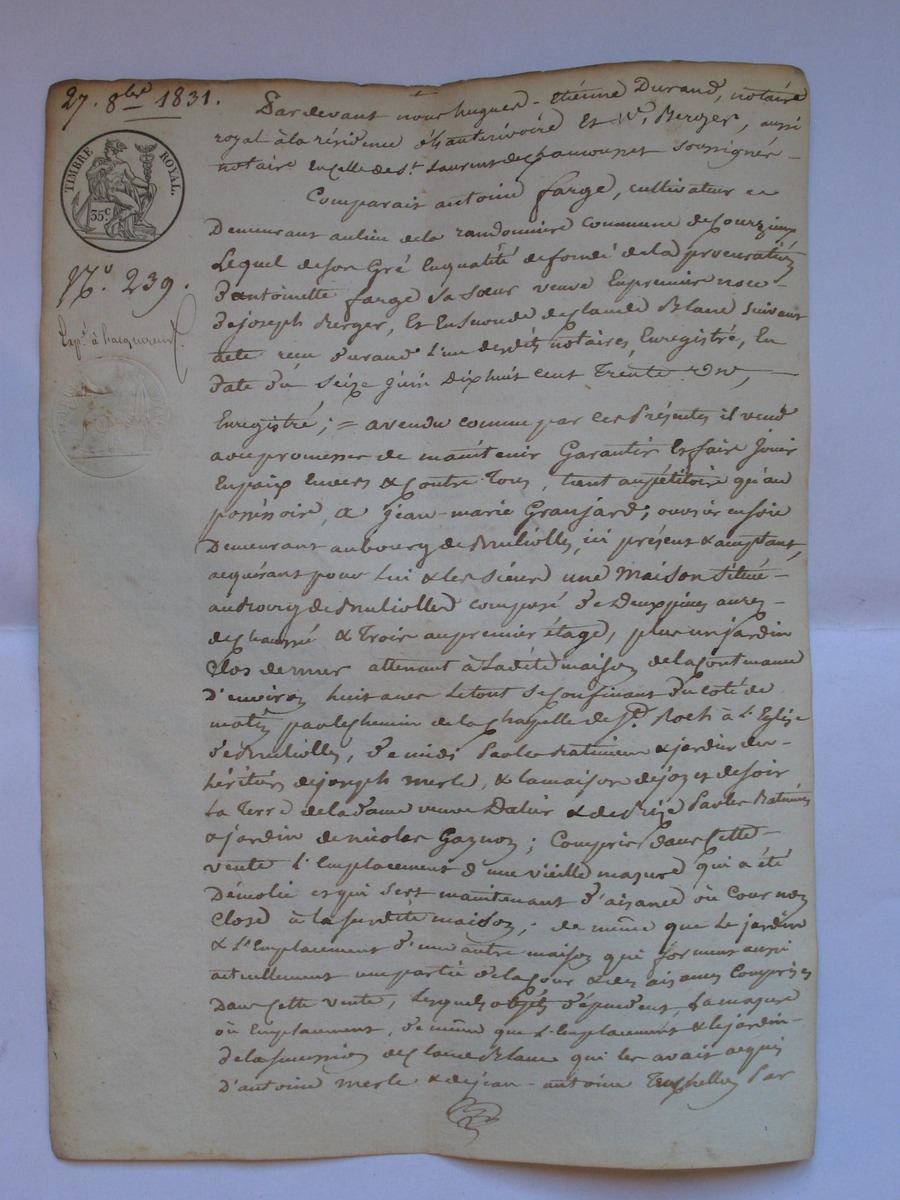 27. 8bre 1831.
TIMBRE ROYAL.
35c
No. 239.
Exp.on à l'acquereur.
Pardevant nous hugues-étienne Durand, notaire
royal à la résidence d'hauterivoire Et Me. Berger, aussi
notaire En celle de St. Laurent de chamousset soussignés-
Comparait antoine farge, cultivateur
Demeurant au lieu de la randonnière commune de Courzieux
Lequel de son Gré En qualité de fondé de la procuration
D'antoinette farge sa sœur veuve En premier noce-
De joseph Berger, Et En seconde de claude Blanc suivant
acte reçu durand L'un desdits notaires, Enregistré, En
Date du seize juin Dix huit cent Trente un,
Enregistré; = a vendu comme par ces Présentes il vend
avec promesse de maintenir Garantir Et faire Jouir
En paix Envers & contre Tous, tant au pétitoire qu'au
possessoire, a Jean-marie Granjard, ouvrier en soie
Demeurant au bourg de Brullioles, ici présent & acceptant,
acquérant pour Lui & les siens une Maison Située-
au Bourg de Brullioles composé De Deux pieces au rez-
de chaussé & Trois au premier étage, plus un jardin
Clos de mur attenant à Ladite maison de la contenance
D'environ huit ares Le tout se confinant du coté de
matin par le Chemin de la Chapelle de St. Roch à L'Eglise
De Brullioles, De midi Par les Batiments & jardin des-
héritiers de joseph merle, & la maison de joz et de soir
La Terre de la Dame veuve & de Bize Par les Batiments
& jardin de nicolas Gagnon; Compris dans Cette-
vente L'Emplacement d'une vieille mazure qui a été
Démolie et qui sert maintenant d'aisance ou Cour non
Close à la susdite maison; de même que Le jardin
& L'Emplacement d'une autre maison qui forment aussi
actuellement une partie de la Cour & des aisances Comprises
Dans Cette vente, Lesquels objets dépendent, la mazure
où Emplacement, de même que L'Emplacement & le jardin-
de la succession de Claude Blanc qui les avait acquis
D'antoine merle & de jean-antoine Par